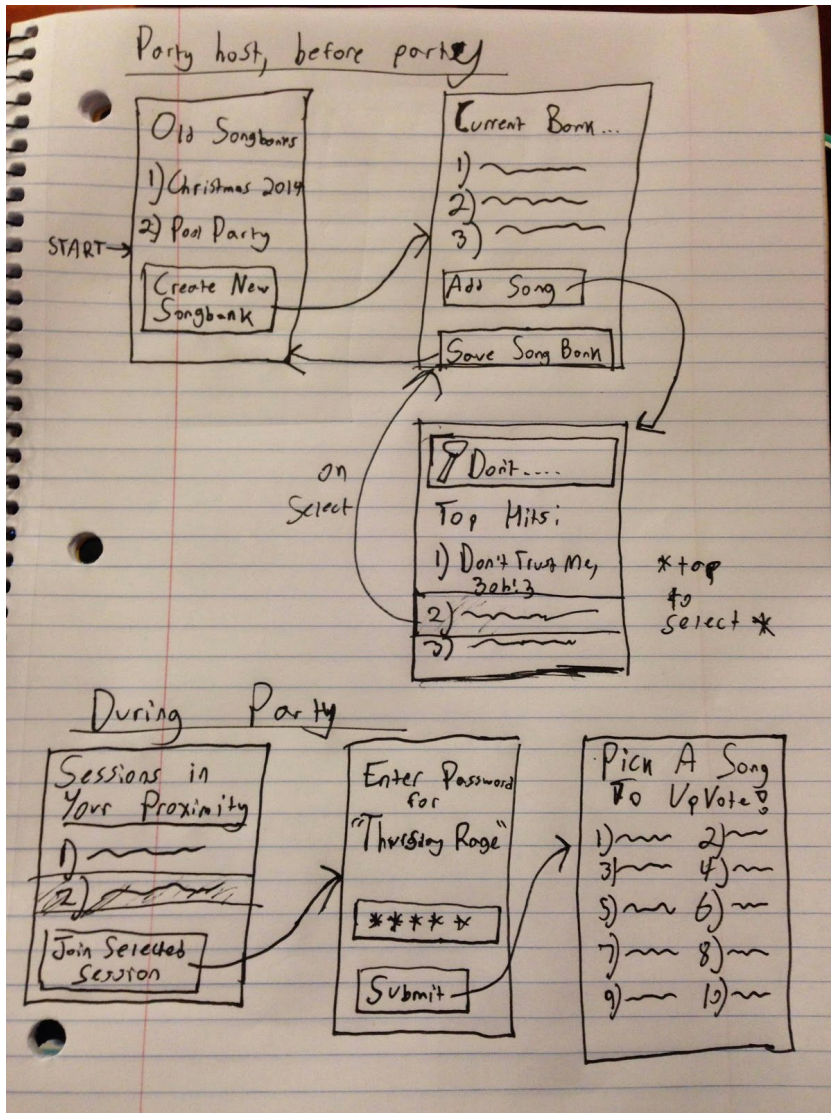 Party host, before party
Old Songbanks
1) Christmas 2014
2) Pool Party
START
Create New
Songbank
Current Bank...
1)
2)
3)
Add Song
Save Song Bank
on
Select
Don't....
Top Hits:
1) Don't Trust Me,
3oh!3
2)
3)
*tap
to
select *
During Party
Sessions in
Your Proximity
1)
2)
Join Selected
Session
Enter Password
for
"Thursday Rage"
*****
Submit
Pick A Song
To UpVote!
1) 2)
3) 4)
5) 6)
7) 8)
9) 10)